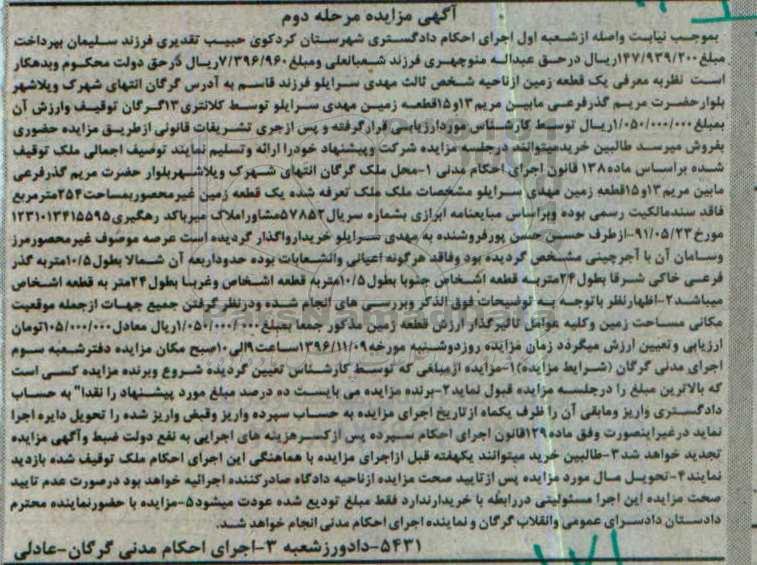 آگهی مزایده مرحله دوم
بموجب نیابت واصله ازشعبه اول اجرای احکام دادگستری شهرستان کردکوی حبیب تقدیری فرزند سلیمان بپرداخت
مبلغ۱۴۷/۹۳۹/۲۰۰ریال درحق عبداله منوچهری فرزند شعبانعلی ومبلغ۷/۳۹۶/۹۶۰ریال درحق دولت محکوم وبدهکار
است نظربه معرفی یک قطعه زمین ازناحیه شخص ثالث مهدی سرایلو فرزند قاسم به آدرس گرگان انتهای شهرک ویلاشهر
بلوارحضرت مریم گذرفرعی مابین مریم۱۳و۱۵قطعه زمین مهدی سرایلو توسط کلانتری۱۳گرگان توقیف وارزش آن
بمبلغ۱/۰۵۰/۰۰۰/۰۰۰ریال توسط کارشناس موردارزیابی قرارگرفته و پس ازجری تشریفات قانونی ازطریق مزایده حضوری
بفروش میرسد طالبین خریدمیتوانند درجلسه مزایده شرکت وپیشنهاد خودرا ارائه وتسلیم نمایند توصیف اجمالی ملک توقیف
شده براساس ماده۱۳۸ قانون اجرای احکام مدنی ۱-محل ملک گرگان انتهای شهرک ویلاشهربلوار حضرت مریم گذرفرعی
مابین مریم۱۳و۱۵قطعه زمین مهدی سرایلو مشخصات ملک ملک تعرفه شده یک قطعه زمین غیرمحصوربمساحت۲۵۴مترمربع
فاقد سندمالکیت رسمی بوده وبراساس مبایعنامه ابرازی بشماره سریال۵۷۸۵۲مشاوراملاک میرباکد رهگیری۱۲۳۱۰۱۳۴۱۵۵۹۵
مورخ۹۱/۰۵/۲۳-ازطرف حسین حسن پورفروشنده به مهدی سرایلو خریدارواگذار گردیده است عرصه موصوف غیرمحصورمرز
وسامان آن با آجرچینی مشخص گردیده بود وفاقد هرگونه اعیانی وانشعابات بوده حدوداربعه آن شمالا بطول۱۰/۵متربه گذر
فرعی خاکی شرقا بطول۲۴متربه قطعه اشخاص جنوبا بطول۱۰/۵متربه قطعه اشخاص وغربا بطول۲۴متر به قطعه اشخاص
میباشد۲-اظهارنظر باتوجه به توضیحات فوق الذکر وبررسی های انجام شده ودرنظرگرفتن جمیع جهات ازجمله موقعیت
مکانی مساحت زمین وکلیه عوامل تاثیرگذار ارزش قطعه زمین مذکور جمعا بمبلغ۱/۰۵۰/۰۰۰/۰۰۰ریال معادل۱۰۵/۰۰۰/۰۰۰تومان
ارزیابی وتعیین ارزش میگردد زمان مزایده روزدوشنبه مورخه ۱۳۹۶/۱۱/۰۹ساعت۹الی۱۰صبح مکان مزایده دفترشعبه سوم
اجرای مدنی گرگان (شرایط مزایده)۱-مزایده ازمبلغی که توسط کارشناس تعیین گردیده شروع وبرنده مزایده کسی است
که بالاترین مبلغ را درجلسه مزایده قبول نماید۲-برنده مزایده می بایست ده درصد مبلغ مورد پیشنهاد را نقدا" به حساب
دادگستری واریز ومابقی آن را ظرف یکماه ازتاریخ اجرای مزایده به حساب سپرده واریز وقبض واریز شده را تحویل دایره اجرا
نماید درغیراینصورت وفق ماده۱۲۹قانون اجرای احکام سپرده پس ازکسرهزینه های اجرایی به نفع دولت ضبط وآگهی مزایده
تجدید خواهد شد۳-طالبین خرید میتوانند یکهفته قبل ازاجرای مزایده با هماهنگی این اجرای احکام ملک توقیف شده بازدید
نمایند۴-تحویل مال مورد مزایده پس ازتایید صحت مزایده ازناحیه دادگاه صادرکننده اجرائیه خواهد بود درصورت عدم تایید
صحت مزایده این اجرا مسئولیتی دررابطه با خریدارندارد فقط مبلغ تودیع شده عودت میشود۵-مزایده با حضورنماینده محترم
دادستان دادسرای عمومی وانقلاب گرگان و نماینده اجرای احکام مدنی انجام خواهد شد.
۵۴۳۱-دادورزشعبه ۳-اجرای احکام مدنی گرگان-عادلی